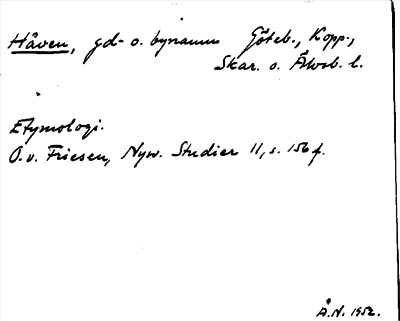 Håven, gd- o. bynamn Göteb., Kopp.,
Skar. o. Älvsb. l.
Etymologi.
O. v. Friesen, Nysv. Studier 11, s. 156 f.
Å.N. 1952.